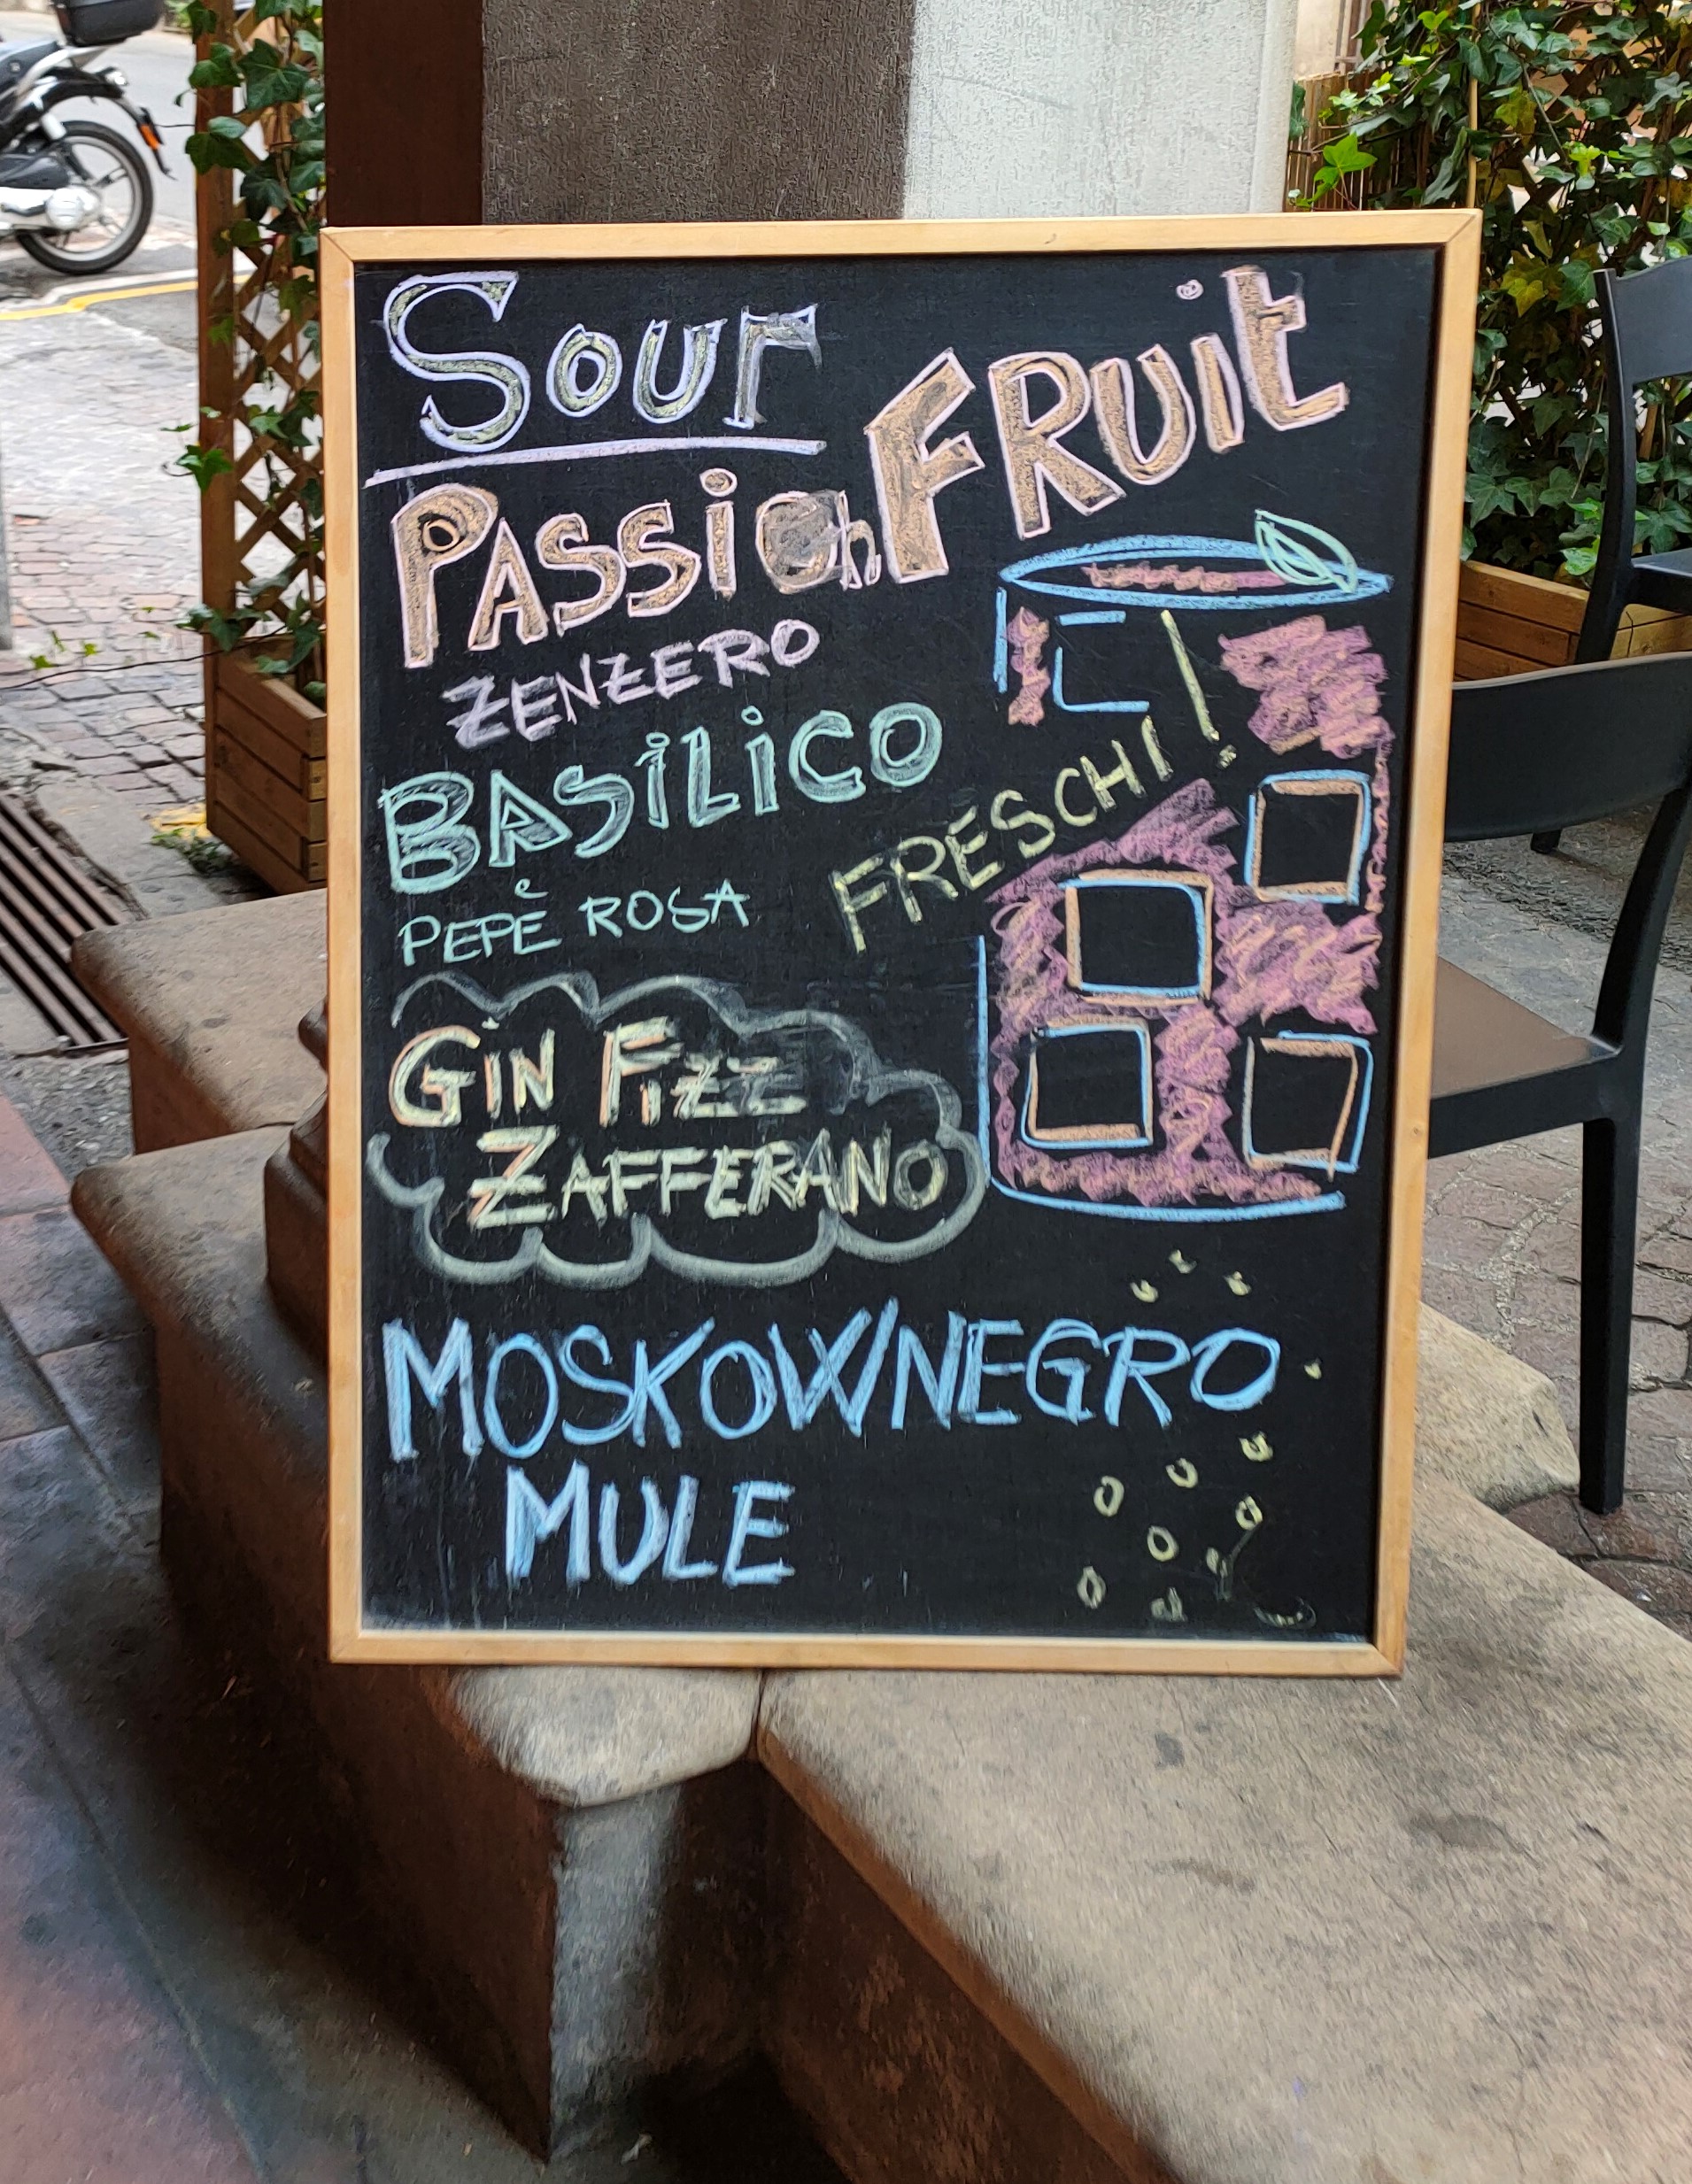 Sour
Passion FRUit
ZENZERO
BASiLiCO
FRESCHI!
PEPE e ROSA
GiN FiZZ
ZAFFERANO
MOSKOW/NEGRO
MULE